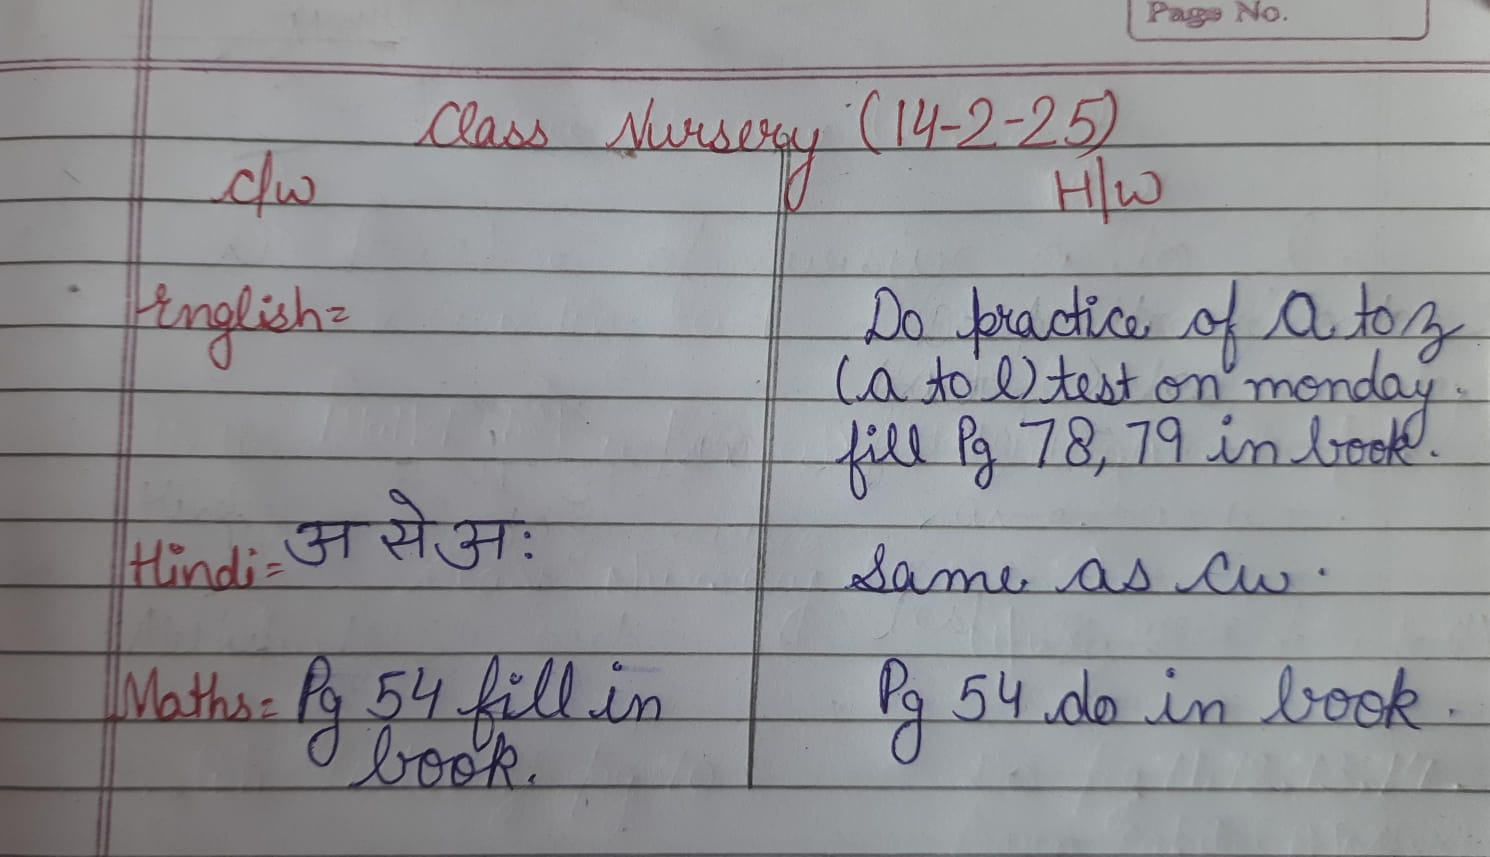 Page No.
Class Nursery (14-2-25)
C/W H/W
English= Do practice of a to z
(a to l) test on monday.
fill Pg 78, 79 in book.
Hindi= अ से अः same as cw.
Maths= Pg 54 fill in Pg 54 do in book.
book.